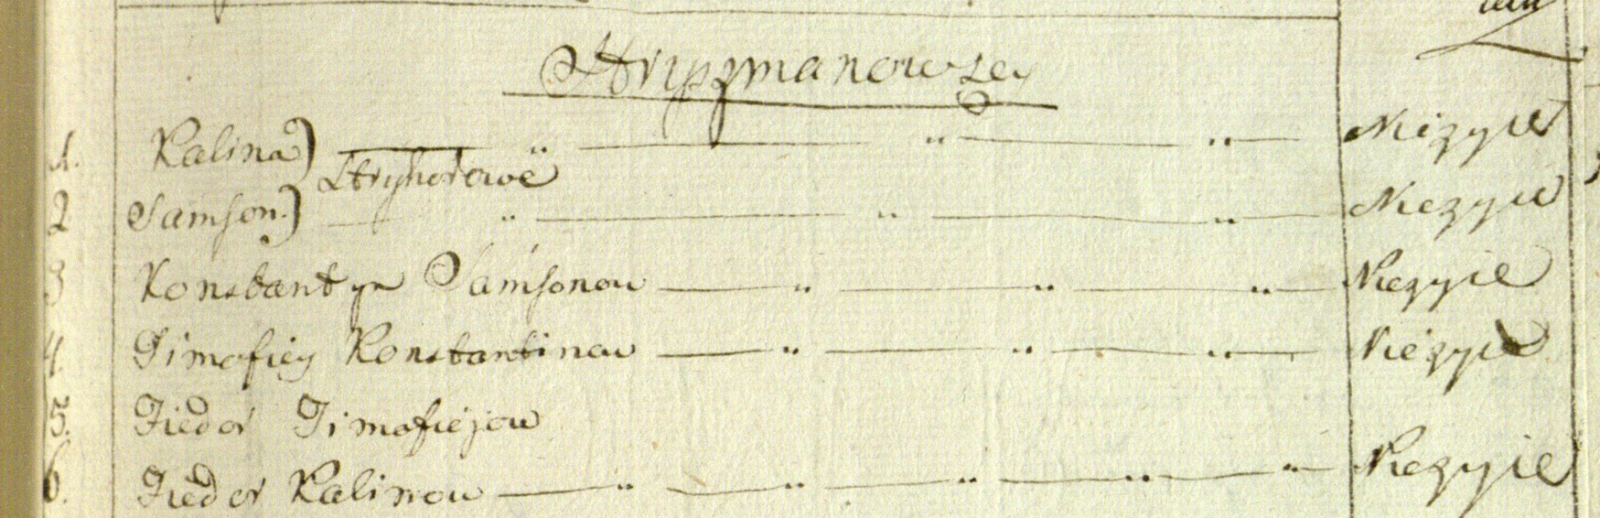 Hryszmanowscy
1. Kalina) Hryhorowe „ „ „ Nieżyie
2 Samson) „ „ „ Nieżyie
3 Konstantyn Samsonow „ „ „ Nieżyie
4. Timofiey Konstantinow „ „ „ Nieżyie
5. Fiedor Timofiejow
6. Fiedor Kalinow „ „ „ „ „ Nieżyie